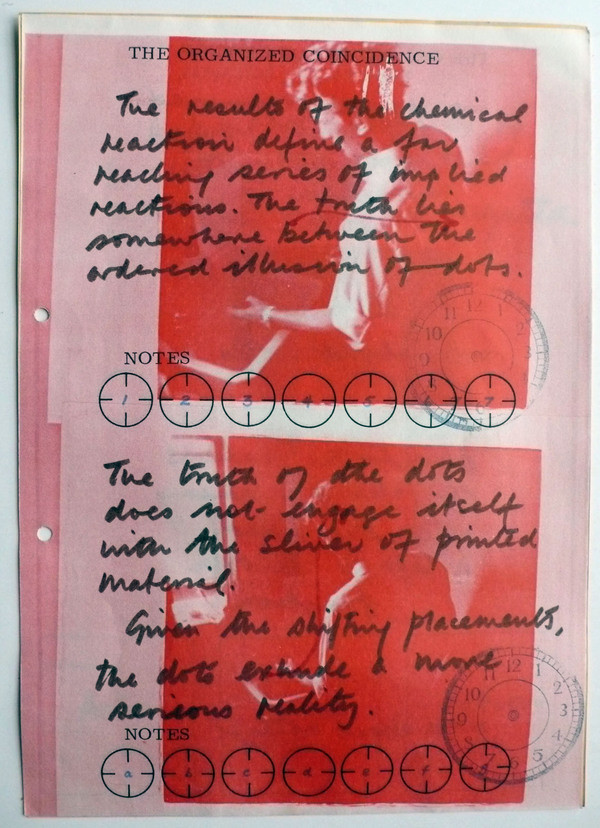 THE ORGANIZED COINCIDENCE
The results of the chemical
reaction define a far
reaching series of implied
reactions. The truth lies
somewhere between the
ordered illusion of dots.
11 12 1
10 2
9 3
NOTES
1 2 3 4 5 6 7
The truth of the dots
does not engage itself
with the sliver of printed
material.
Given the shifting placements,
the dots exhude a more
serious reality.
11 12 1
10 2
9 3
8 4
7 6 5
NOTES
a b c d e f g